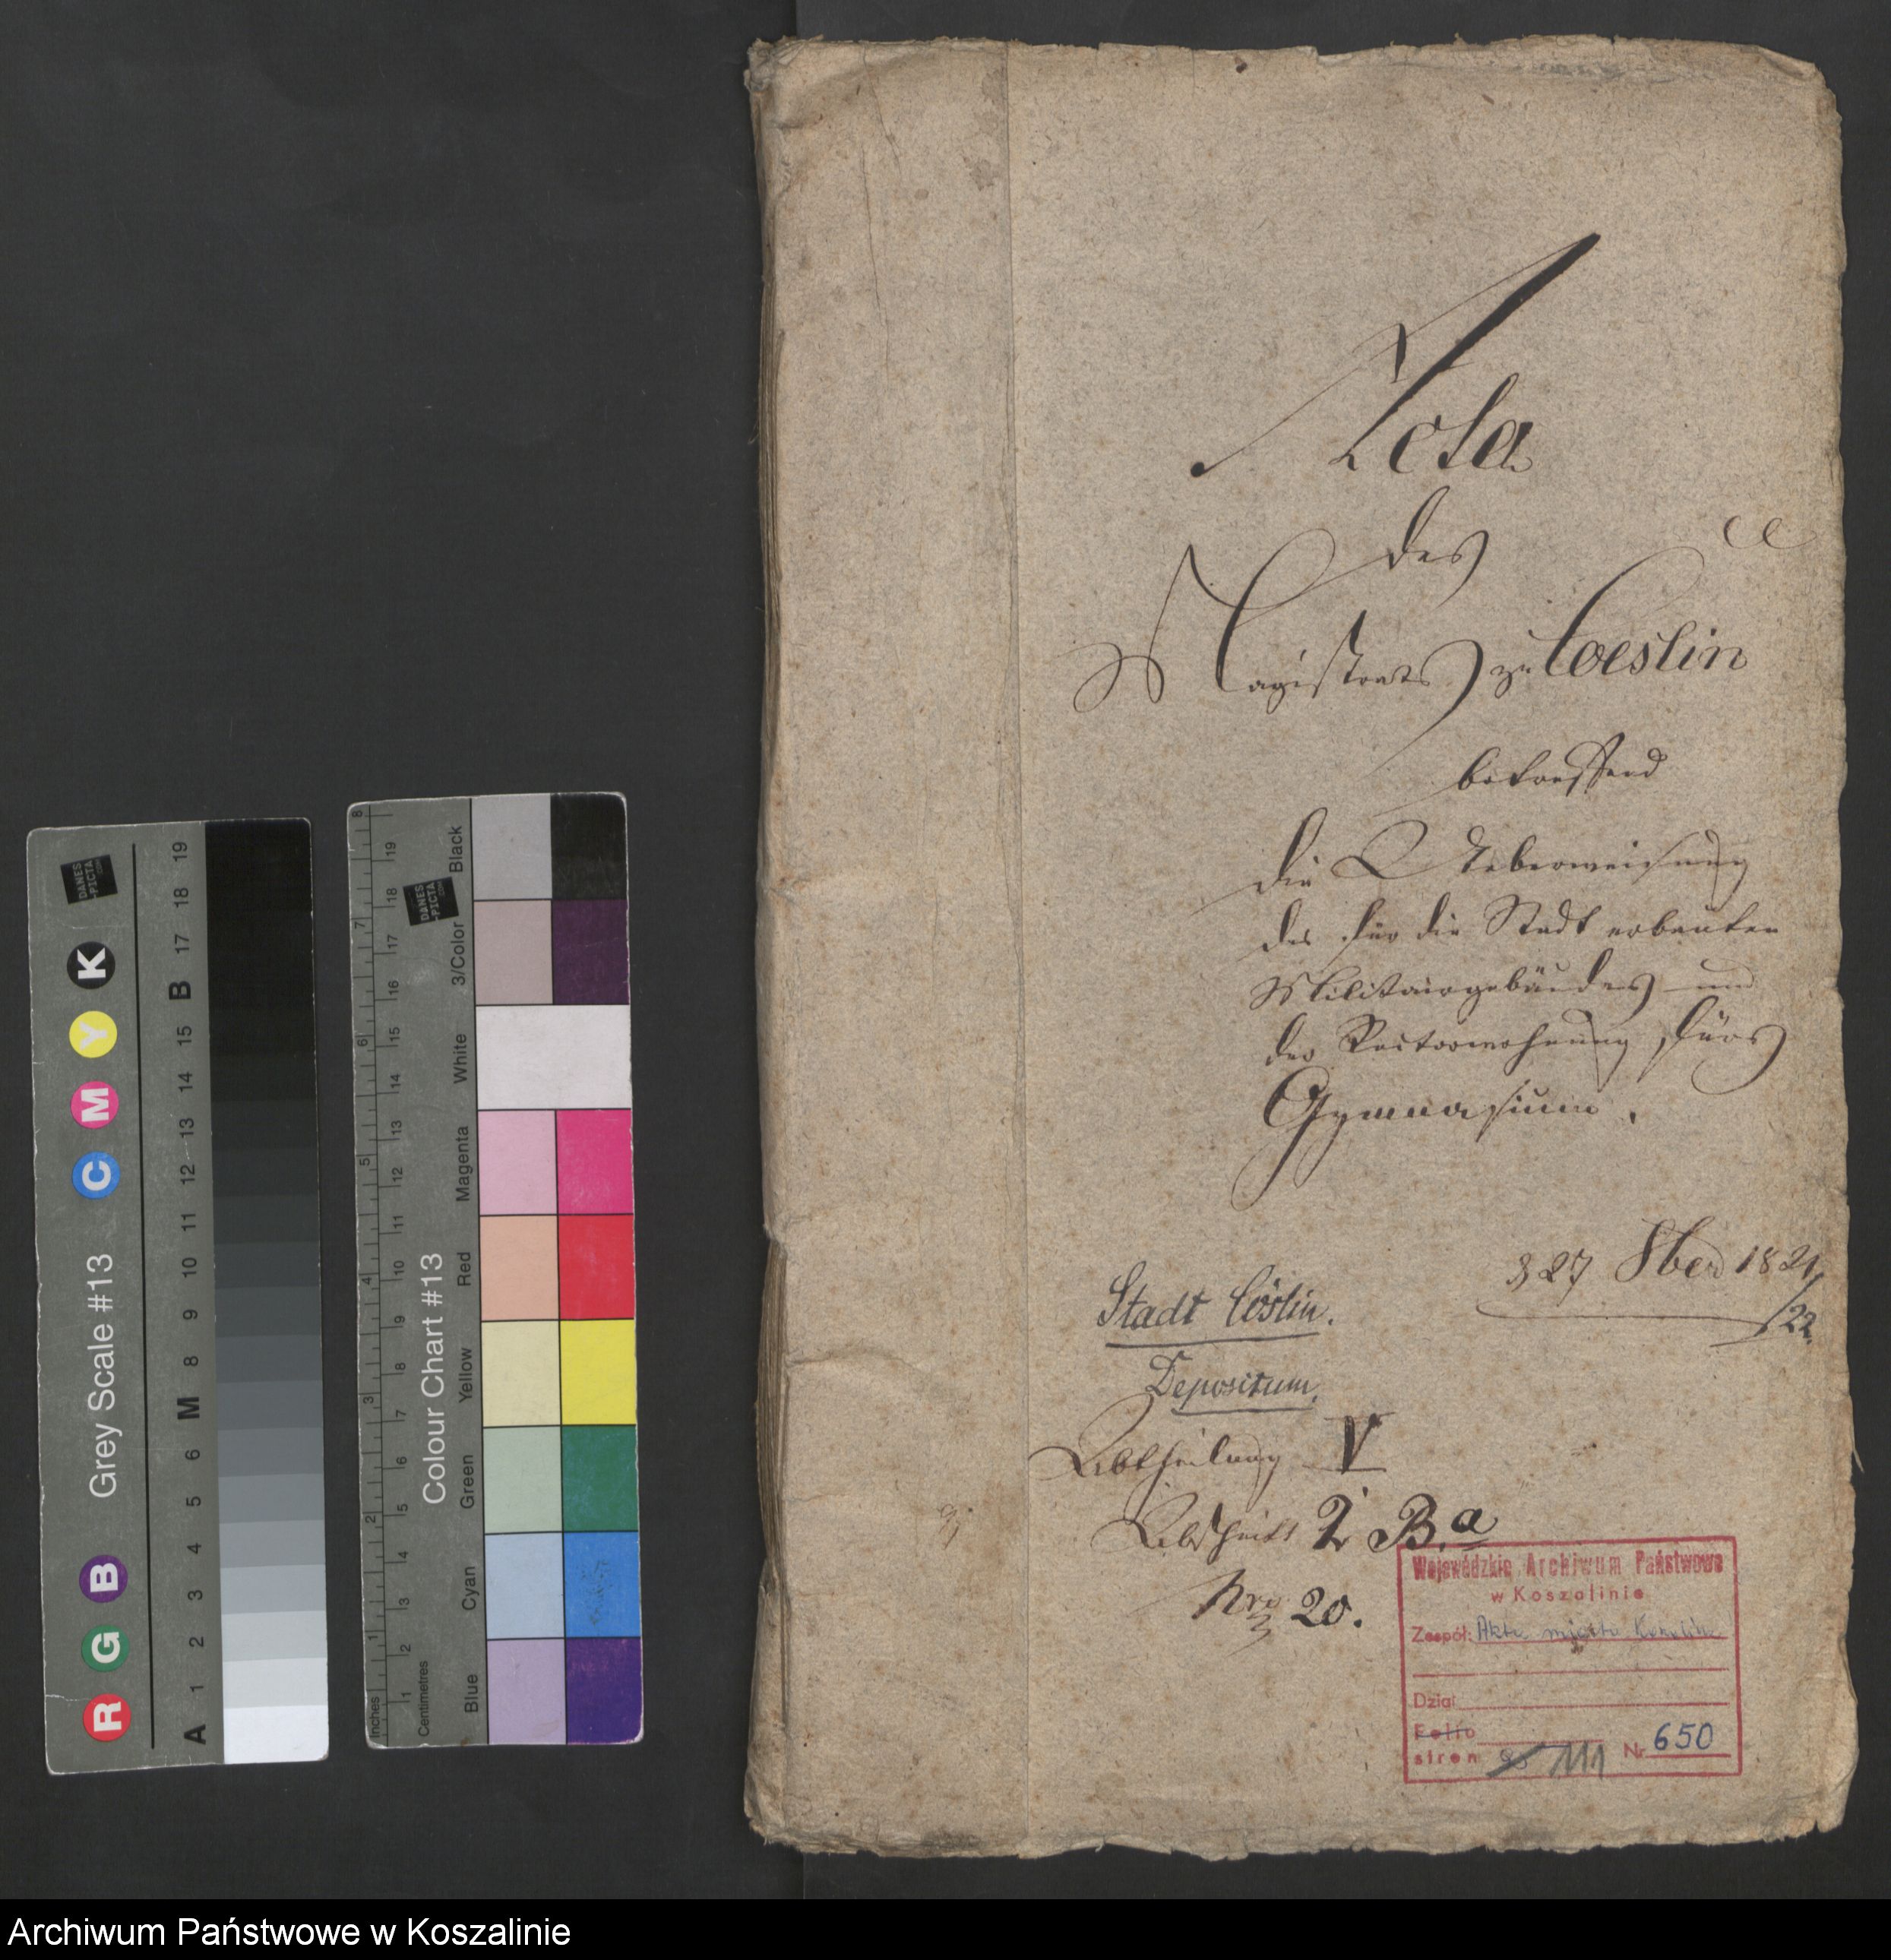 Acta
des
Magistrats zu Coeslin
betreffend
die Ueberweisung
des für die Stadt erbauten
Militairgebäudes und
der Rectorwohnung fürs
Gymnasium.
327 8ber 1821/22.
Stadt Cöslin.
Depositum.
Abtheilung V
Abschnitt B.a
Nro 20.
Wojewódzkie Archiwum Państwowe
w Koszalinie
Zespół: Akta miasta Koszalina
Dział
Folio
stron 111 Nr 650
Grey Scale #13
R G B C M Y K
DANES-PICTA.COM
A 1 2 3 4 5 6 M 8 9 10 11 12 13 14 15 B 17 18 19
Colour Chart #13
DANES-PICTA.COM
Inches 1 2 3 4 5 6 7 8
Centimetres 1 2 3 4 5 6 7 8 9 10 11 12 13 14 15 16 17 18 19
Blue Cyan Green Yellow Red Magenta White 3/Color Black
Archiwum Państwowe w Koszalinie